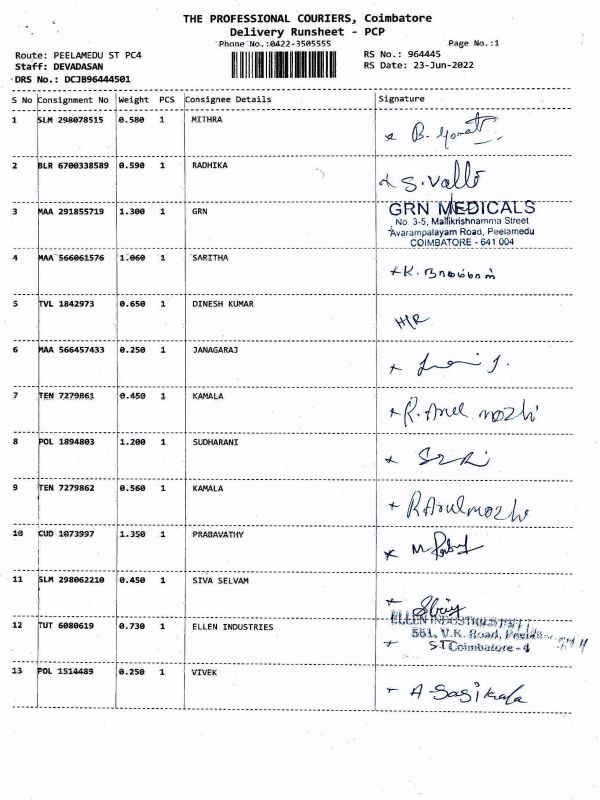 THE PROFESSIONAL COURIERS, Coimbatore
Delivery Runsheet - PCP
Phone No.:0422-3505555
Page No.:1
Route: PEELAMEDU ST PC4
RS No.: 964445
Staff: DEVADASAN
RS Date: 23-Jun-2022
DRS No.: DCJB96444501
S No Consignment No Weight PCS Consignee Details Signature
1 SLM 298078515 0.580 1 MITHRA
2 BLR 6700338589 0.590 1 RADHIKA S. Valli
3 MAA 291855719 1.300 1 GRN GRN MEDICALS
No 3-5, Mallikrishnamma Street
Avarampalayam Road, Peelamedu
COIMBATORE - 641 004
4 MAA 566061576 1.060 1 SARITHA
5 TVL 1842973 0.650 1 DINESH KUMAR
6 MAA 566457433 0.250 1 JANAGARAJ
7 TEN 7279861 0.450 1 KAMALA R. Arul mozhi
8 POL 1894803 1.200 1 SUDHARANI
9 TEN 7279862 0.560 1 KAMALA R Arulmozhi
10 CUD 1073997 1.350 1 PRABAVATHY
11 SLM 298062210 0.450 1 SIVA SELVAM
12 TUT 6080619 0.730 1 ELLEN INDUSTRIES ELLEN INDUSTRIES
551, V.K. Road,
Coimbatore - 4
13 POL 1514489 0.250 1 VIVEK A Sasikala